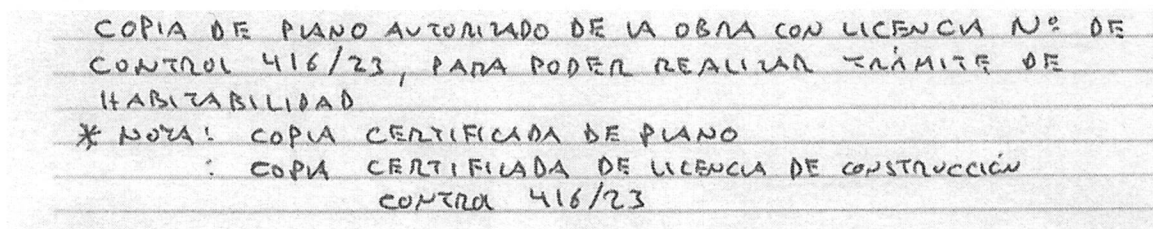 COPIA DE PLANO AUTORIZADO DE LA OBRA CON LICENCIA Nº DE
CONTROL 416/23, PARA PODER REALIZAR TRÁMITE DE
HABITABILIDAD
* NOTA: COPIA CERTIFICADA DE PLANO
: COPIA CERTIFICADA DE LICENCIA DE CONSTRUCCIÓN
CONTROL 416/23